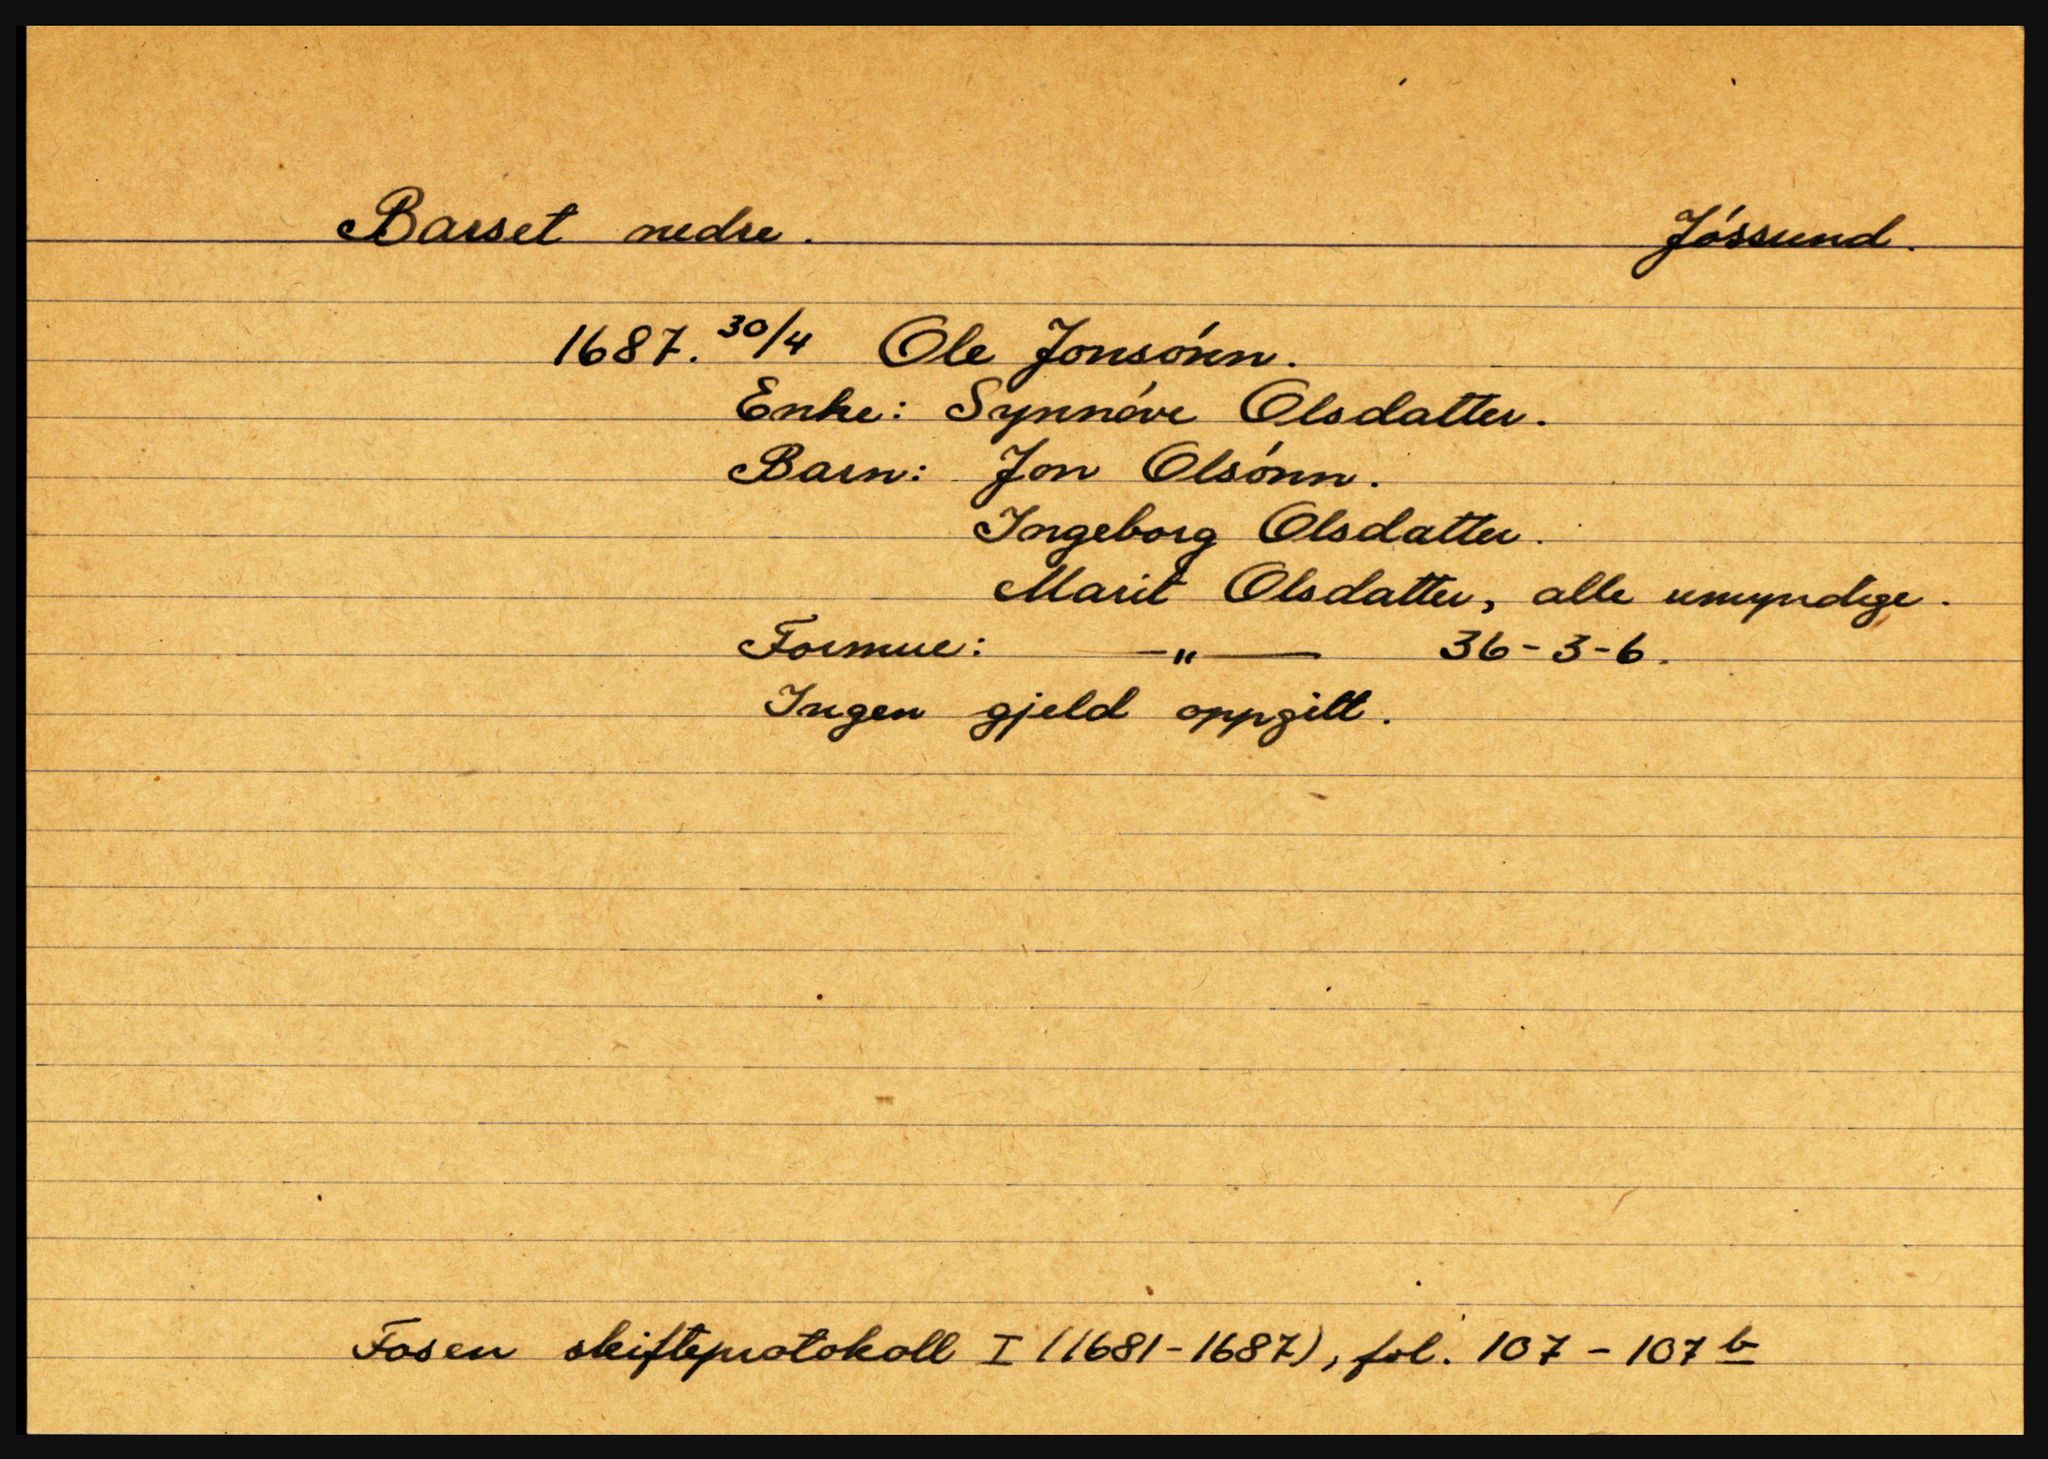 Barset nedre. Jóssund.
1687. 30/4 Ole Jonsónn.
Enke: Synnóve Olsdatter.
Barn: Jon Olsónn.
Ingeborg Olsdatter.
Marit Olsdatter, alle umyndige.
Formue: —"— 36-3-6.
Ingen gjeld oppgitt.
Fosen skifteprotokoll I (1681-1687), fol. 107 - 107 b